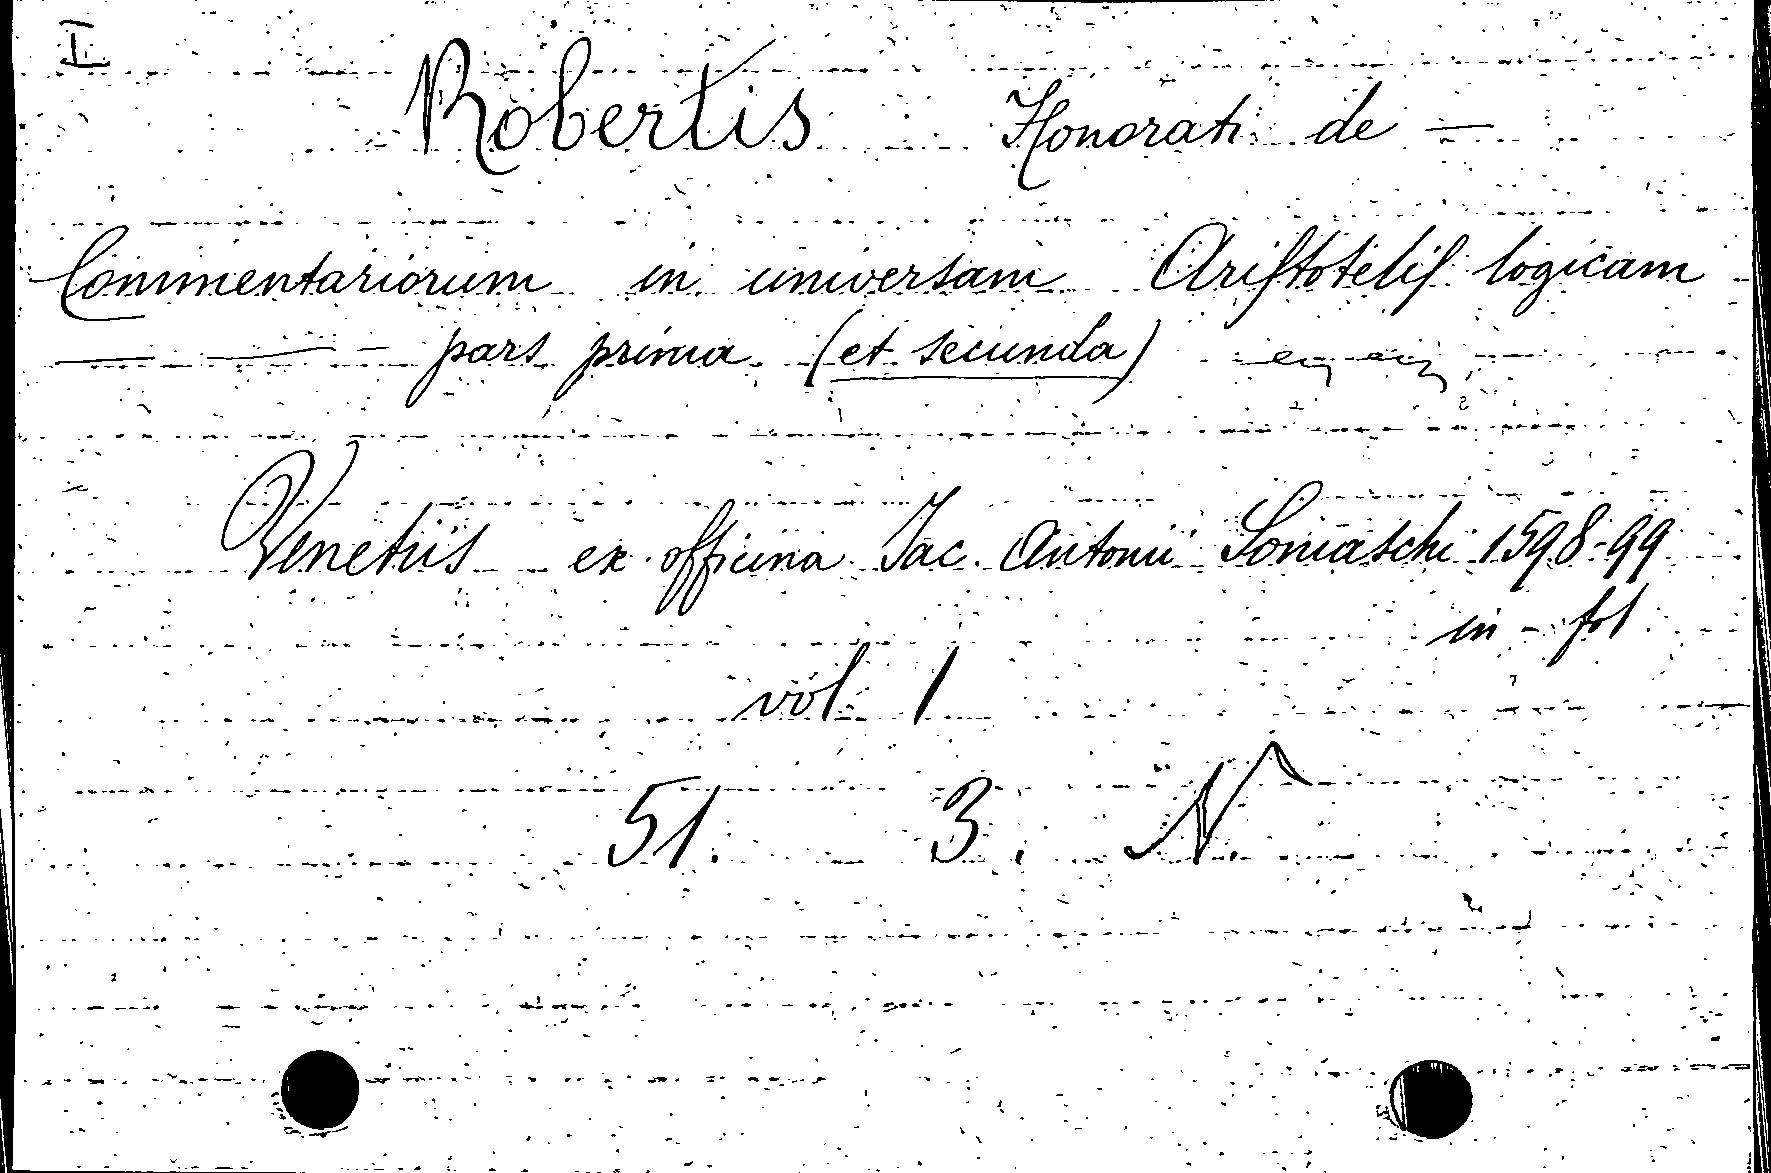 I
Robertis Honorati de —
Commentariorum in universam Ariſtoteliſ logicam
— — - pars prima (et secunda)
Venetiis ex officina Jac. Antonii Somaschi 1598-99
in - fol
vol 1
51. 3. N